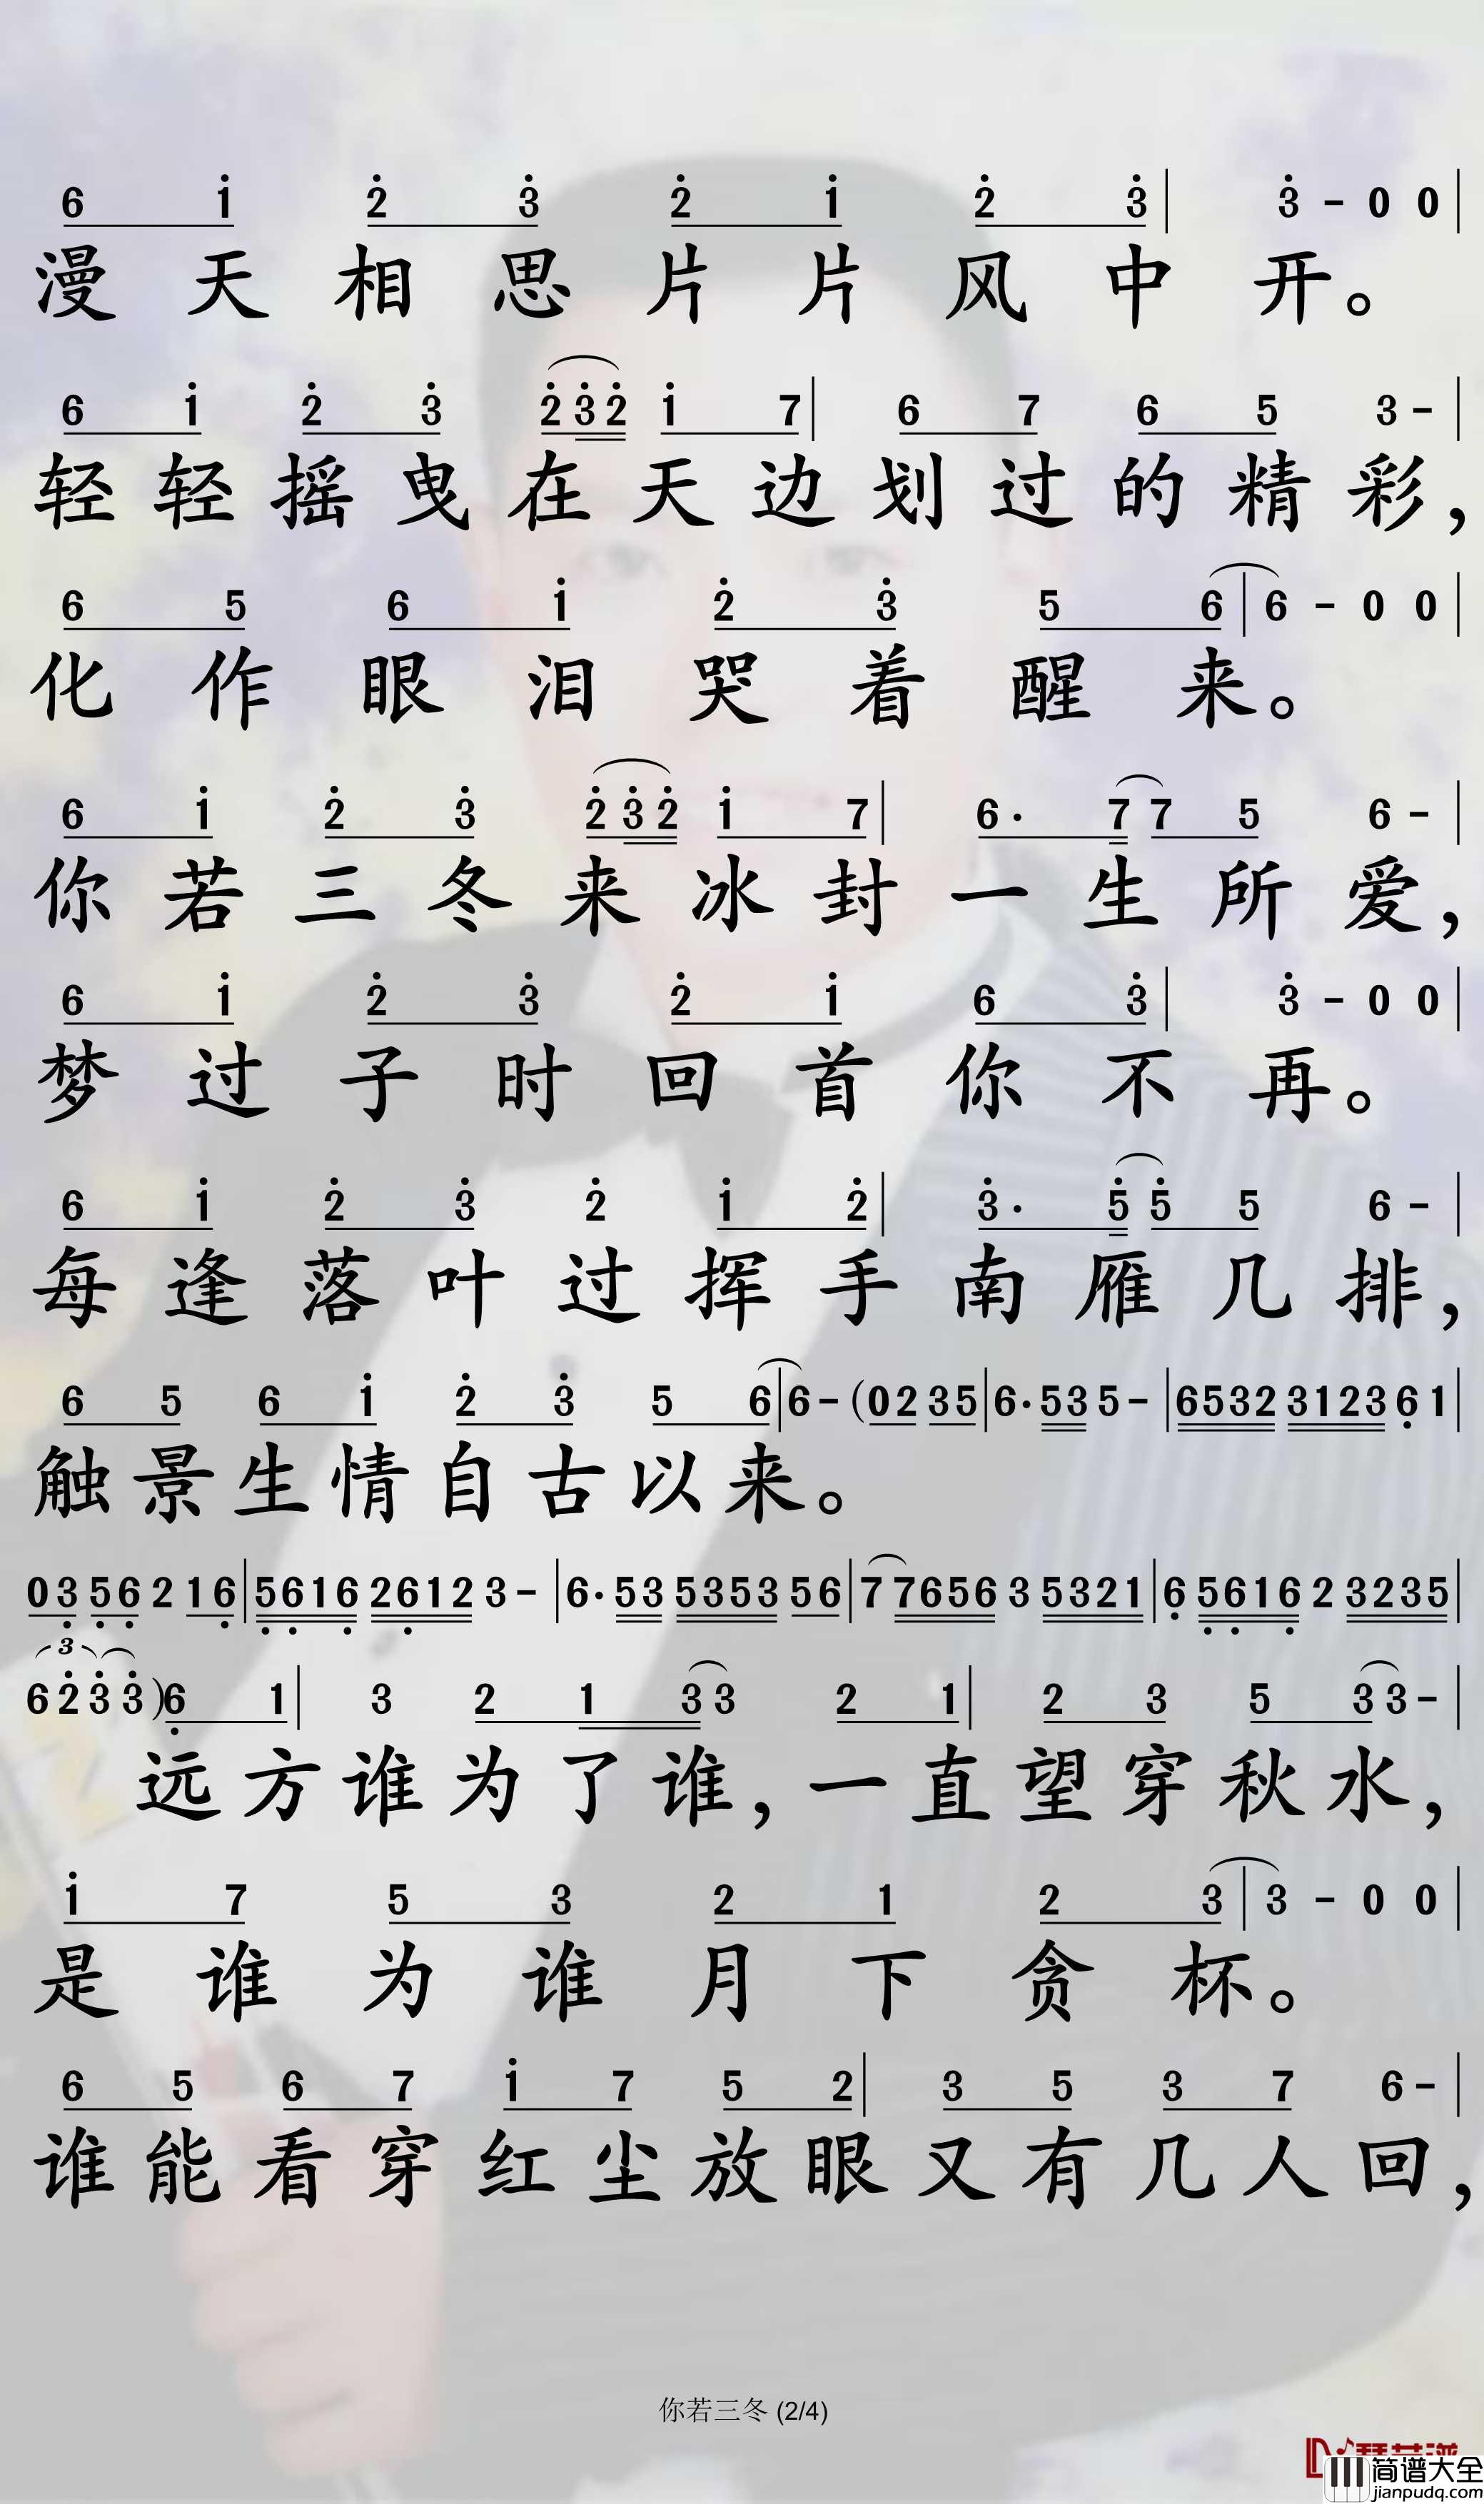 6 1̇ 2̇ 3̇ 2̇ 1̇ 2̇ 3̇ | 3̇ - 0 0 |
漫天相思片片风中开。
6 1̇ 2̇ 3̇ 2̇3̇2̇ 1̇ 7 | 6 7 6 5 3 - |
轻轻摇曳在天边划过的精彩，
6 5 6 1̇ 2̇ 3̇ 5 6 | 6 - 0 0 |
化作眼泪哭着醒来。
6 1̇ 2̇ 3̇ 2̇3̇2̇ 1̇ 7 | 6· 7 7 5 6 - |
你若三冬来冰封一生所爱，
6 1̇ 2̇ 3̇ 2̇ 1̇ 6 3̇ | 3̇ - 0 0 |
梦过子时回首你不再。
6 1̇ 2̇ 3̇ 2̇ 1̇ 2̇ | 3̇· 5̇ 5̇ 5 6 - |
每逢落叶过挥手南雁几排，
6 5 6 1̇ 2̇ 3̇ 5 6 | 6 - (0 2 3 5 | 6· 5 3 5 - | 6532 3123 6̣ 1 |
触景生情自古以来。
0 3̣ 5̣ 6̣ 2 1 6̣ | 5̣6̣16̣ 26̣12 3 - | 6· 53 5353 56 | 7 7656 3 5321 | 6̣ 5̣6̣16̣ 2 3235 |
3
6 2̇ 3̇ 3̇ ) 6̣ 1 | 3 2 1 3 3 2 1 | 2 3 5 3 3 - |
远方谁为了谁，一直望穿秋水，
1̇ 7 5 3 2 1 2 3 | 3 - 0 0 |
是谁为谁月下贪杯。
6 5 6 7 1̇ 7 5 2 | 3 5 3 7 6 - |
谁能看穿红尘放眼又有几人回，
你若三冬 (2/4)
简谱大全
jianpudq.com